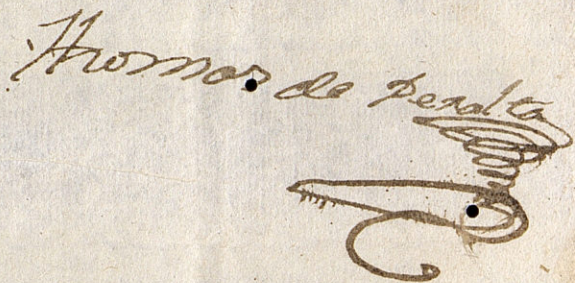 Thomas de Peralta